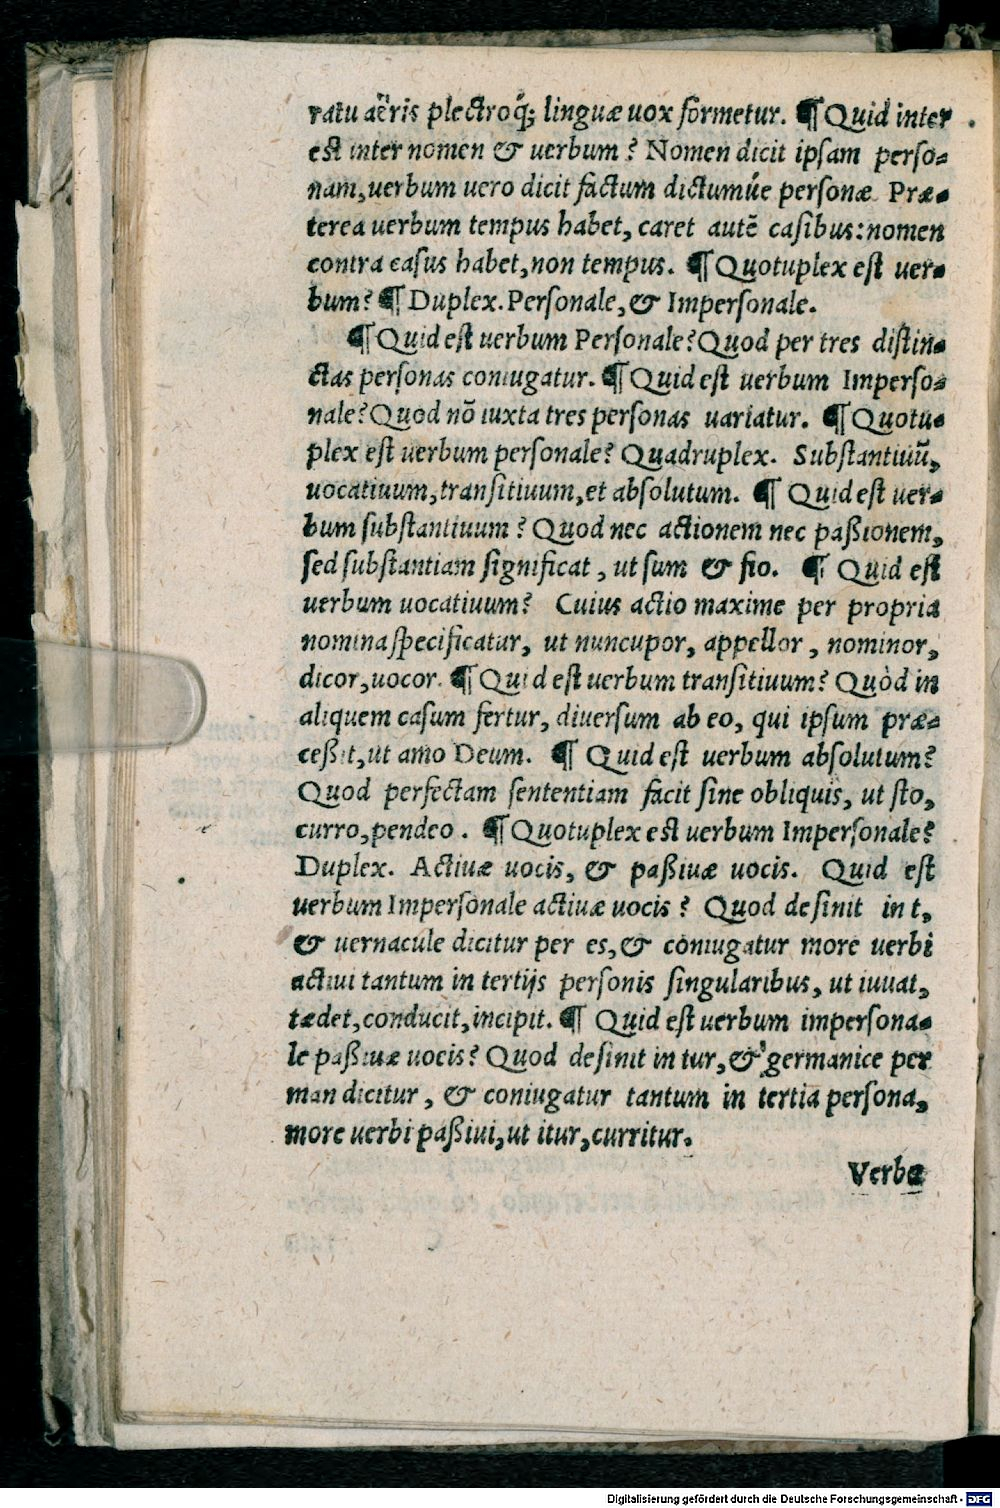 ratu aëris plectroq́; linguæ uox formetur. ¶ Quid inter
est inter nomen & uerbum? Nomen dicit ipsam perso-
nam, uerbum uero dicit factum dictumúe personæ. Præ-
terea uerbum tempus habet, caret autẽ casibus: nomen
contra casus habet, non tempus. ¶ Quotuplex est uer-
bum? ¶ Duplex. Personale, & Impersonale.
¶ Quid est uerbum Personale? Quod per tres distin-
ctas personas coniugatur. ¶ Quid est uerbum Imperso-
nale? Quod nõ iuxta tres personas uariatur. ¶ Quotu-
plex est uerbum personale? Quadruplex. Substantiuũ,
uocatiuum, transitiuum, et absolutum. ¶ Quid est uer-
bum substantiuum? Quod nec actionem nec paßionem,
sed substantiam significat, ut sum & fio. ¶ Quid est
uerbum uocatiuum? Cuius actio maxime per propria
nomina specificatur, ut nuncupor, appellor, nominor,
dicor, uocor. ¶ Quid est uerbum transitiuum? Quòd in
aliquem casum fertur, diuersum ab eo, qui ipsum præ-
ceßit, ut amo Deum. ¶ Quid est uerbum absolutum?
Quod perfectam sententiam facit sine obliquis, ut sto,
curro, pendeo. ¶ Quotuplex est uerbum Impersonale?
Duplex. Actiuæ uocis, & paßiuæ uocis. Quid est
uerbum Impersonale actiuæ uocis? Quod desinit in t,
& uernacule dicitur per es, & coniugatur more uerbi
actiui tantum in tertijs personis singularibus, ut iuuat,
tædet, conducit, incipit. ¶ Quid est uerbum impersona-
le paßiuæ uocis? Quod desinit in tur, & germanice per
man dicitur, & coniugatur tantum in tertia persona,
more uerbi paßiui, ut itur, curritur.
Verba
Digitalisierung gefördert durch die Deutsche Forschungsgemeinschaft - DFG